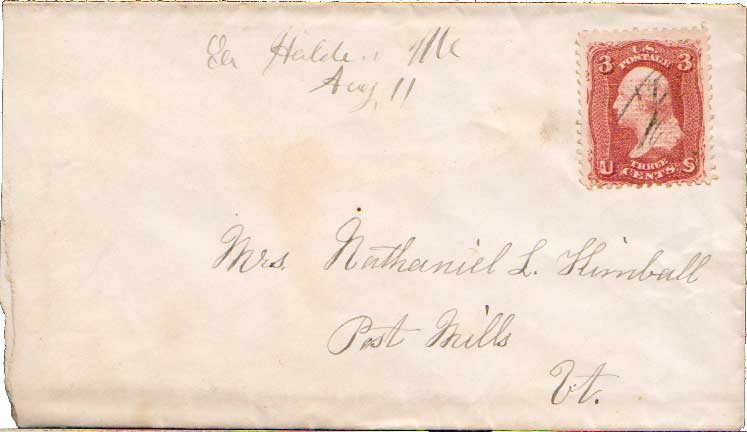 Me
Aug 11
U.S.
POSTAGE
3 3
THREE
U CENTS S
Mrs. Nathaniel L. Kimball
Post Mills
Vt.